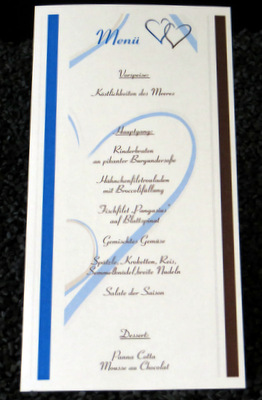 Menü
Vorspeise:
Köstlichkeiten des Meeres
Hauptgang:
Rinderbraten
an pikanter Burgundersoße
Hähnchenfiletrouladen
mit Broccolifüllung
Fischfilet „Pangasius"
auf Blattspinat
Gemischtes Gemüse
Spätzle, Kroketten, Reis,
Semmelknödel, breite Nudeln
Salate der Saison
Dessert:
Panna Cotta
Mousse au Chocolat